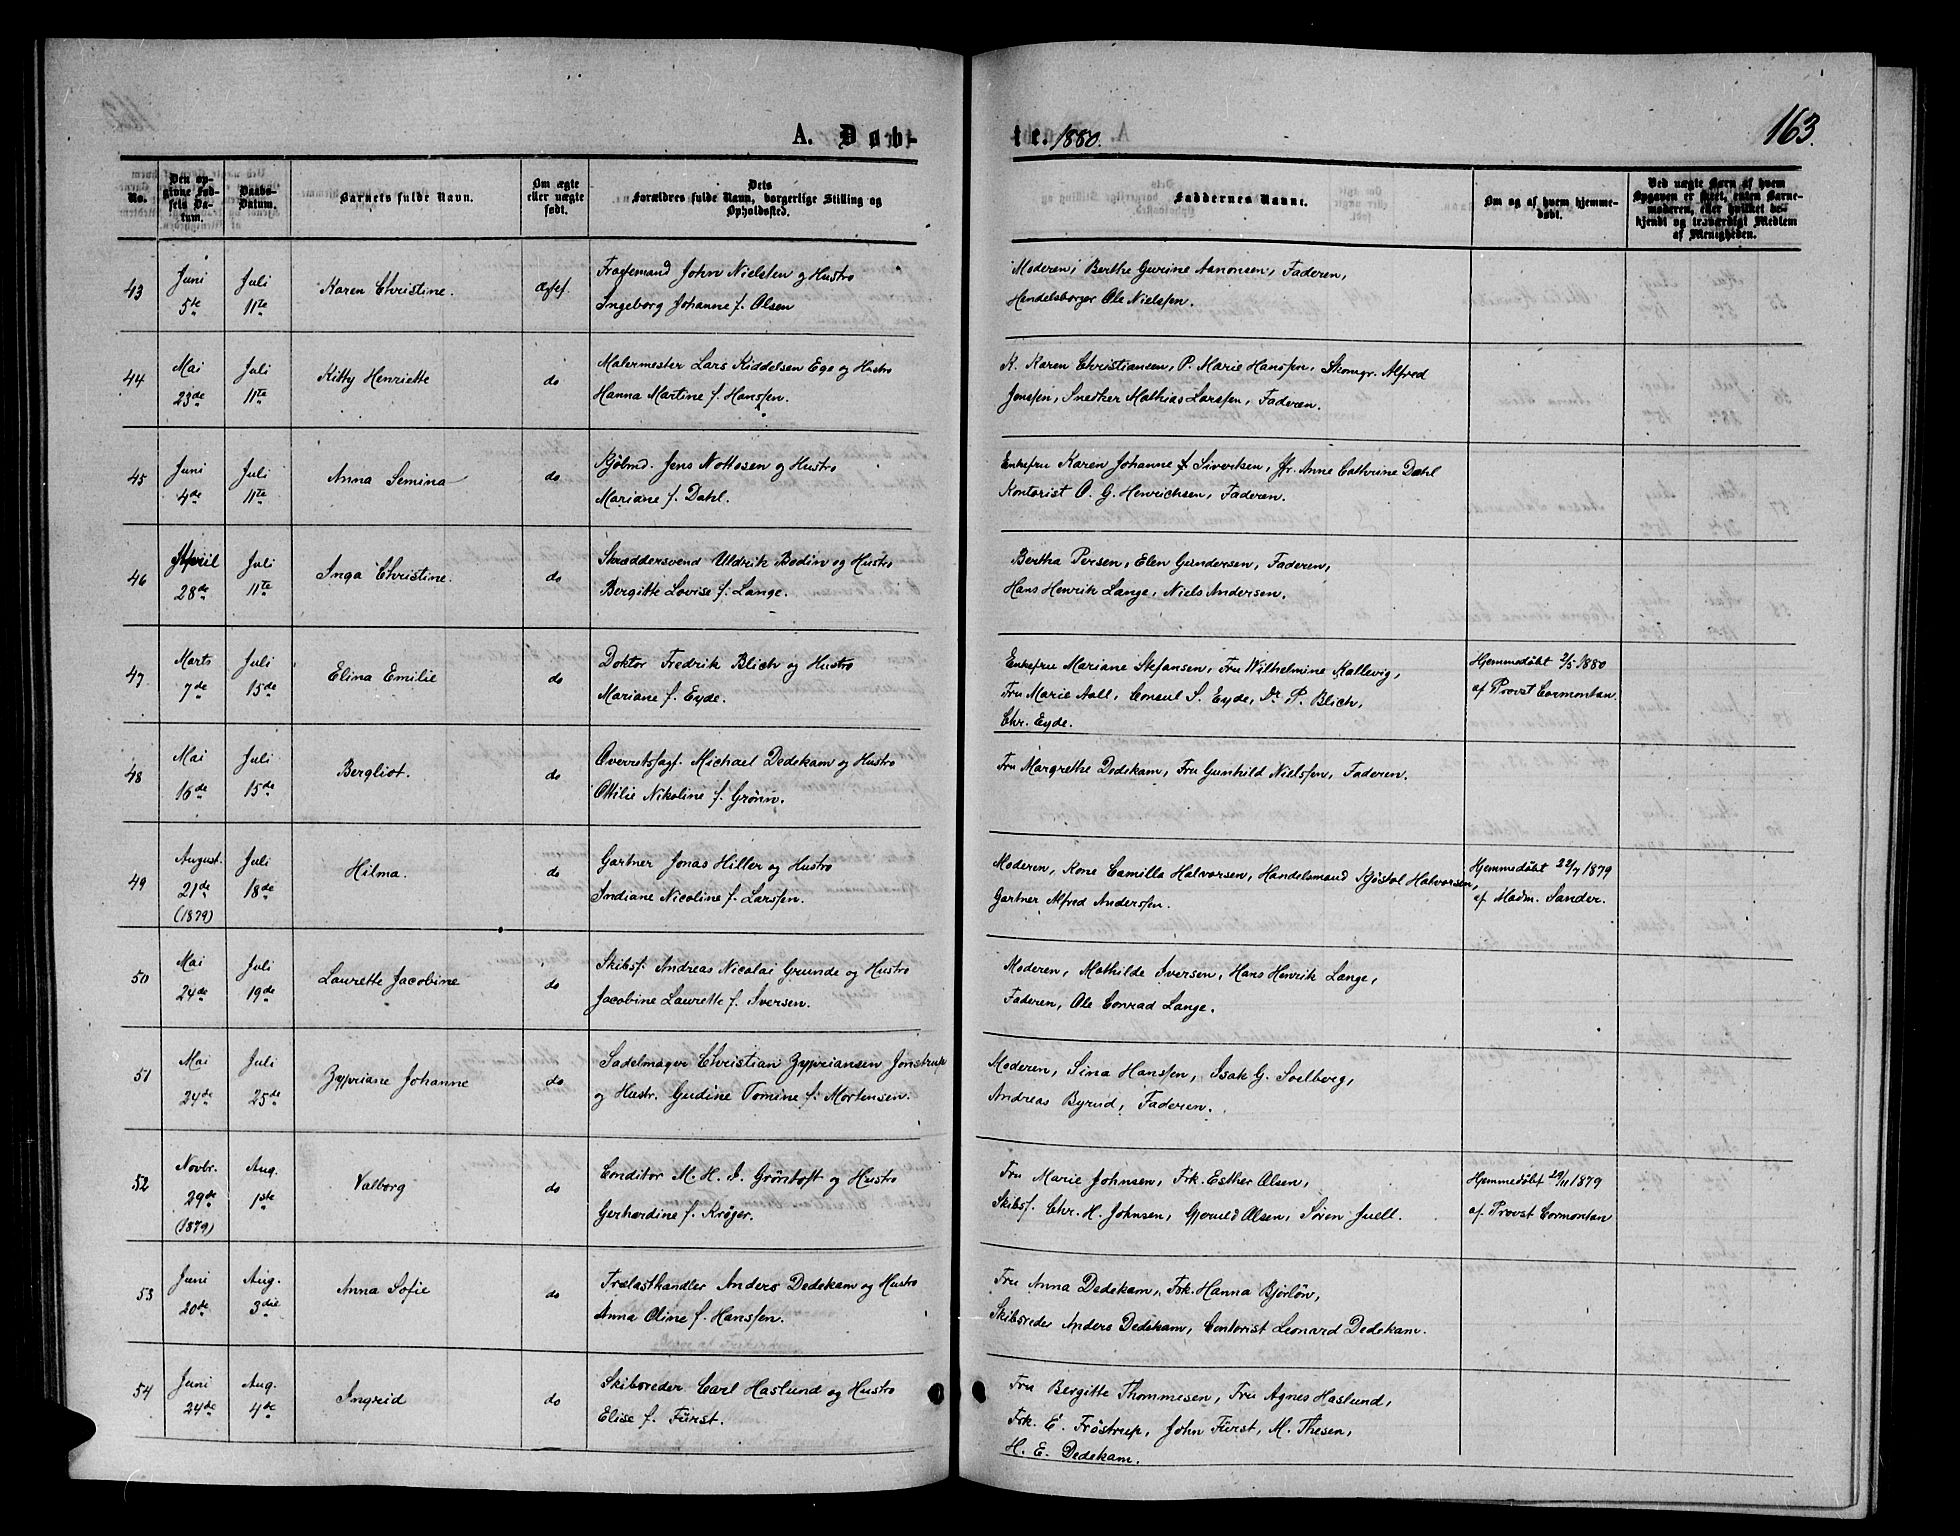 163.
A. Døb-
te. 1880.
No.
Den op-
givne Fød-
sels Da-
tum.
Daabs-
Datum.
Barnets fulde Navn.
Om ægte
eller uægte
født.
Dets
Forældres fulde Navn, borgerlige Stilling og
Opholdssted.
Faddernes Navne.
Om og af hvem hjemme-
døbt.
Ved uægte Børn af hvem
Opgaven er skeet, enten Barne-
moderen, eller hvilket be-
kjendt og troværdigt Medlem
af Menigheden.
43
Juni
5te
Juli
11te
Karen Christine.
Ægtef.
John Nielsen og Hustro
Ingeborg Johanne f. Olsen
Moderen, Berthe Gurine Aanonsen, Faderen,
Handelsborger Ole Nielssen.
44
Mai
23de
Juli
11te
Kitty Henriette
do
Malermester Lars Kiddelsen Ege og Hustro
Hanna Martine f. Hanssen.
K. Karen Christiansen, P. Marie Hanssen, Skomgr. Alfred
Jenssen, Snedker Mathias Larssen, Faderen.
45
Juni
4de
Juli
11te
Anna Semina
do
Kjøbmd. Jens Nottosen og Hustro
Mariane f. Dahl.
Enkefru Karen Johanne f. Sivertsen, fr. Anne Cathrine Dahl
Kontorist O. G. Henrichsen, Faderen.
46
April
28de
Juli
11te
Inga Christine.
do
Skræddersvend Uldrik Bodin og Hustro
Bergitte Lovise f. Lange.
Bertha Persen, Elen Gundersen, Faderen,
Hans Henrik Lange, Niels Andersen.
47
Marts
7de
Juli
15de
Elina Emilie
do
Doktor Fredrik Blich og Hustro
Mariane f. Eyde.
Enkefru Mariane Stefansen, Fru Wilhelmine Kallevig,
Fru Marie Aall, Consul S. Eyde, Dr. P. Blich,
Chr. Eyde.
Hjemmedøbt 2/5 1880
af Provst Cormontan.
48
Mai
16de
Juli
15de
Bergliot.
do
Overretssagf. Michael Dedekam og Hustro
Ottilie Nikoline f. Grønn.
Fru Margrethe Dedekam, Fru Gunhild Nielssen, Faderen.
49
August.
21de
(1879)
Juli
18de
Hilma.
do
Gartner Jonas Hiller og Hustro
Indiane Nicoline f. Larssen.
Moderen, Kone Camilla Halvorsen, Handelsmand Kjøstol Halvorsen,
Gartner Alfred Anderssen.
Hjemmedøbt 22/7 1879
af Madm. Sander.
50
Mai
24de
Juli
19de
Laurette Jacobine
do
Skibsf. Andreas Nicolai Grunde og Hustro
Jacobine Laurette f. Iversen.
Moderen, Mathilde Iversen, Hans Henrik Lange,
Faderen, Ole Conrad Lange.
51
Mai
24de
Juli
25de
Zypriane Johanne
do
Sadelmager Christian Zypriansen Jonstrup
og Hustr. Gudine Tomine f. Mortensen.
Moderen, Sina Hanssen, Isak G. Solberg,
Andreas Byrud, Faderen.
52
Novbr.
29de
(1879)
Aug.
1ste
Valborg
do
Conditor M. H. I. Grøntoft og Hustro
Gerhardine f. Krøger.
Fru Marie Johnsen, Frk. Esther Olsen,
Skibsf. Chr. H. Johnsen, Gjeruld Olsen, Søren Juell.
Hjemmedøbt 29/11 1879
af Provst Cormontan
53
Juni
20de
Aug.
3die
Anna Sofie
do
Trælasthandler Anders Dedekam og Hustro
Anna Oline f. Hanssen.
Fru Anna Dedekam, Frk. Hanna Bjorløw,
Skibsreder Anders Dedekam, Contorist Leonard Dedekam.
54
Juni
24de
Aug.
4de
Ingrid
do
Skibsreder Carl Haslund og Hustro
Elise f. Fürst.
Fru Bergitte Thommesen, Fru Agnes Haslund,
Frk. E. Frøstrup, John Fürst, M. Thesen,
H. E. Dedekam.